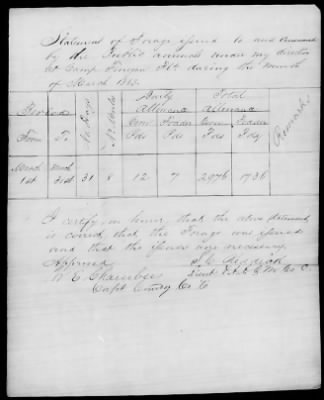 Statement of Forage issued to and consumed
by the Public animals under my direction
at Camp Finegan Fla. during the month
of March 1863.
Daily Total
Allowance Allowance
No Days No Mules Corn Fodder Corn Fodder Remarks
From To Pds Pds Pds Pds
March 1st March 31st 31 8 12 7 2976 1736
I certify on honor, that the above statement
is correct, that the Forage was issued
and that the issues were necessary.
Approved
W. E. Chambers Lieut
Capt Comdg Co C